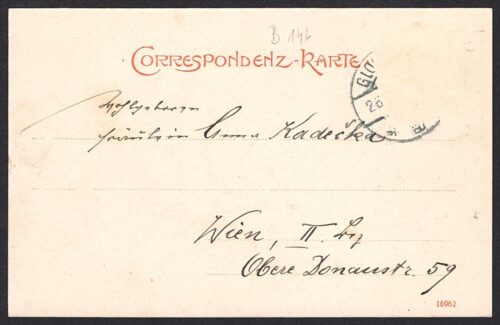 B 146
CORRESPONDENZ-KARTE
Wohlgeboren
Fräulein Anna Kadečka
Wien, II. Bez
Obere Donaustr. 59
16962